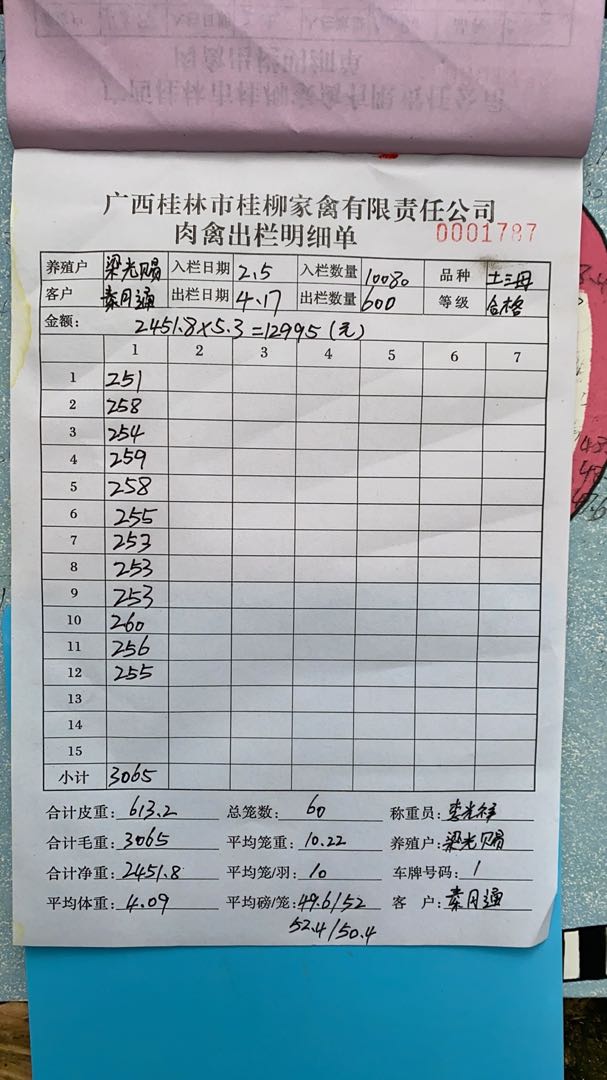 广西桂林市桂柳家禽有限责任公司
肉禽出栏明细单 0001787
养殖户 梁光赐 入栏日期 2.5 入栏数量 10080 品种 土三母
客户 秦月通 出栏日期 4.17 出栏数量 600 等级 合格
金额: 2451.8×5.3=12995(元)
1 2 3 4 5 6 7
1 251
2 258
3 254
4 259
5 258
6 255
7 253
8 253
9 253
10 260
11 256
12 255
13
14
15
小计 3065
合计皮重: 613.2 总笼数: 60 称重员: 李光祥
合计毛重: 3065 平均笼重: 10.22 养殖户: 梁光赐
合计净重: 2451.8 平均笼/羽: 10 车牌号码: 1
平均体重: 4.09 平均磅/笼: 49.6/52 客 户: 秦月通
52.4/50.4